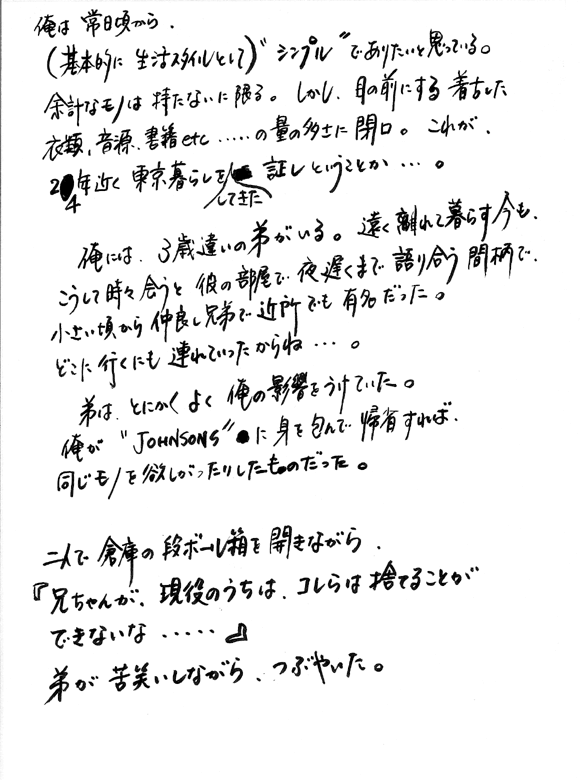 俺は 常日頃から、
(基本的に 生活スタイルとして)“シンプル”でありたいと思っている。
余計なモノは 持たないに限る。しかし、目の前にする 着古した
衣類、音源、書籍etc ・・・・・の量の多さに 閉口。これが、
24年近く 東京暮らしをしてきた 証しということか・・・。
俺には、3歳違いの弟がいる。遠く離れて暮らす今も、
こうして時々会うと 彼の部屋で 夜遅くまで 語り合う間柄で、
小さい頃から 仲良し兄弟で 近所でも 有名だった。
どこに行くにも 連れていったからね・・・。
弟は、とにかく よく 俺の影響をうけていた。
俺が “JOHNSONS”に 身を包んで 帰省すれば、
同じモノを欲しがったりしたものだった。
二人で 倉庫の段ボール箱を開きながら、
『兄ちゃんが、現役のうちは、コレらは捨てることが
できないな・・・・・』
弟が 苦笑いしながら、つぶやいた。